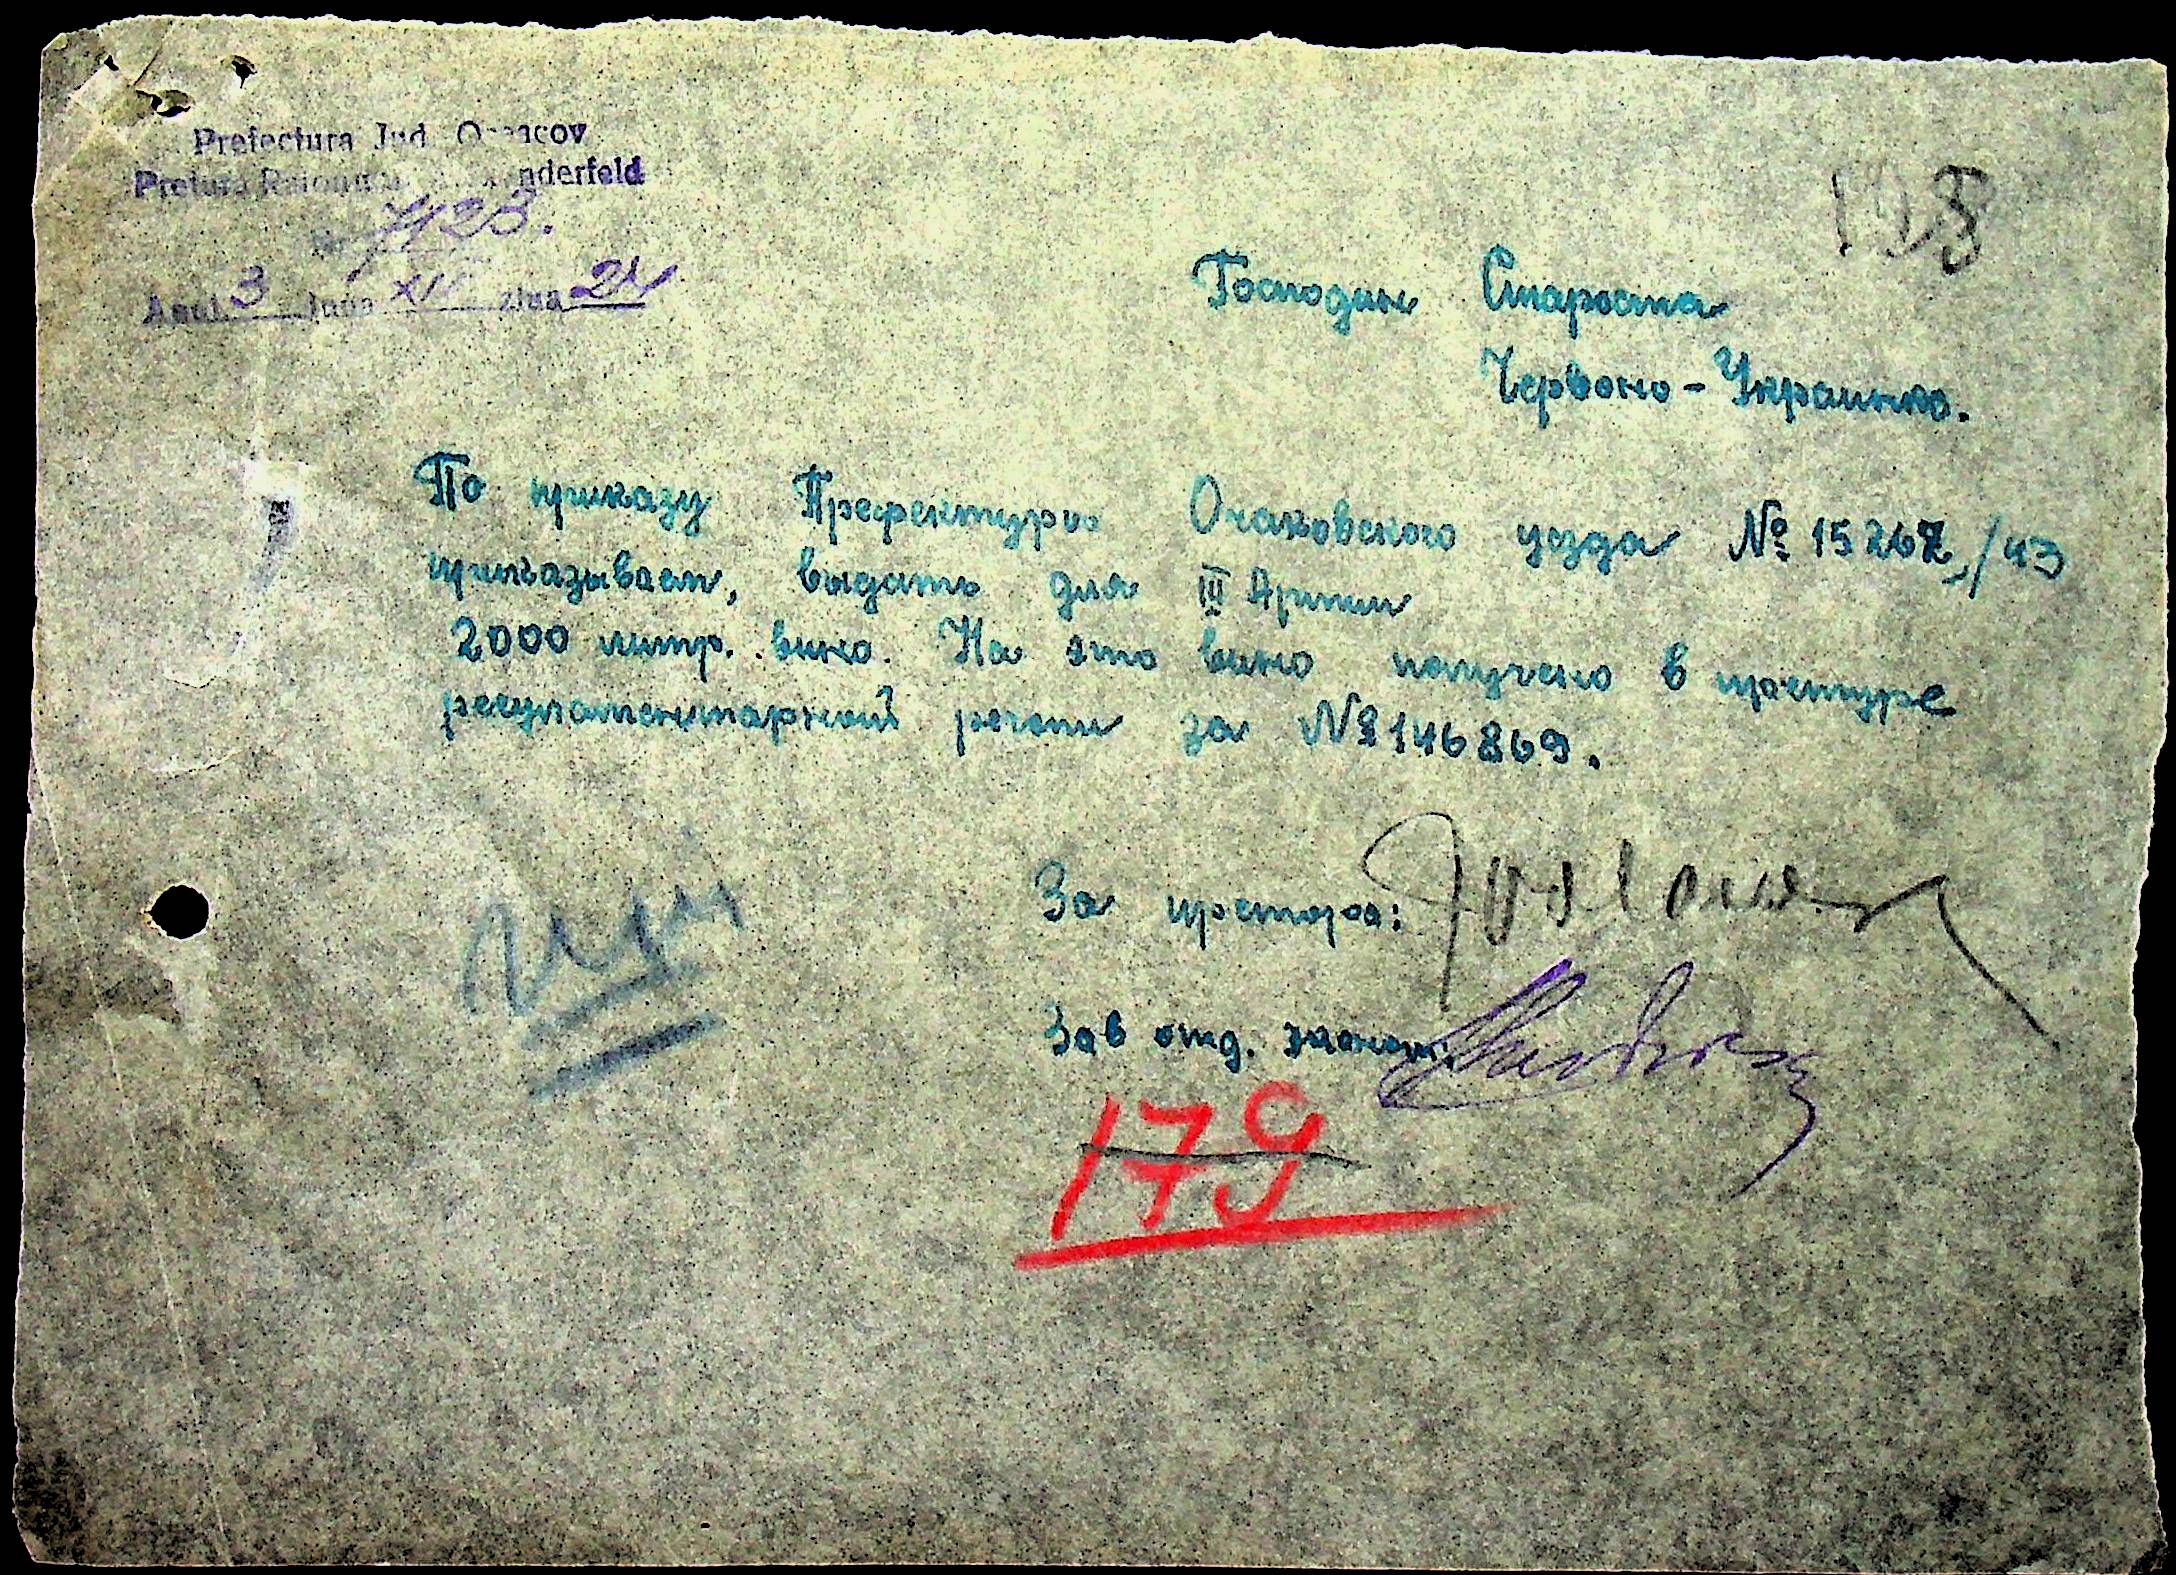 Prefectura Jud. Oceacov
Pretura Raionului nderfeld
7123.
Anul 3 luna XII ziua 24
198
Господин Староста
Червоно-Украинка.
По приказу Префектуры Очаковского уезда № 15267/43
приказываем, выдать для III Армии
2000 литр. вина. На это вино получено в претуре
регуламентарный речепи за № 146869.
За претора:
Зав отд. эконом.
179